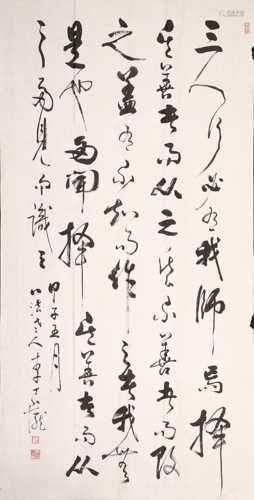 三人行必有我師焉擇
其善者而从之其不善者而改
之蓋有不知而作之者我無
是也多聞擇其善者而从
之多見而識之
甲子五月
老人